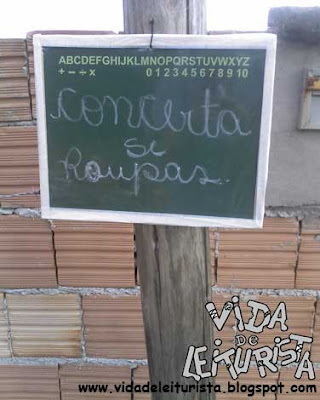 ABCDEFGHIJKLMNOPQRSTUVWXYZ
+ − ÷ x 0 1 2 3 4 5 6 7 8 9 10
Concerta
se
Roupas
ViDA
DE
LEiTURiSTA
www.vidadeleiturista.blogspot.com